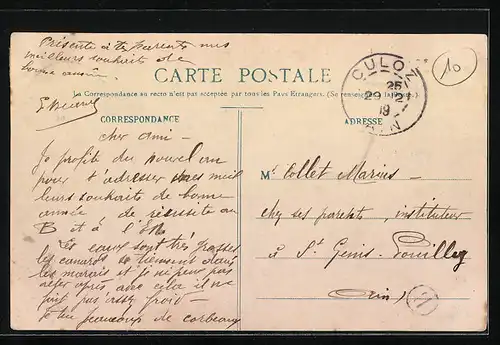 Présente à tes parents mes
meilleurs souhaits de
bonne année
CULOZ
25
29 12
19
AIN
10
CARTE POSTALE
La Correspondance au recto n'est pas acceptée par tous les Pays Etrangers. (Se renseigner à la Poste)
CORRESPONDANCE
ADRESSE
Cher Ami -
Je profite du nouvel an
pour t'adresser mes meil
leurs souhaits de bonne
année, de réussite au
B et à l'
Les eaux sont très grosses
les canards se tiennent dans
les marais et je ne peux pas
aller après avec cela il ne
fait pas assez froid -
Je tue beaucoup de corbeaux
Mr Collet Marius
chez ses parents, instituteur
à St Genis-Pouilly
(Ain)